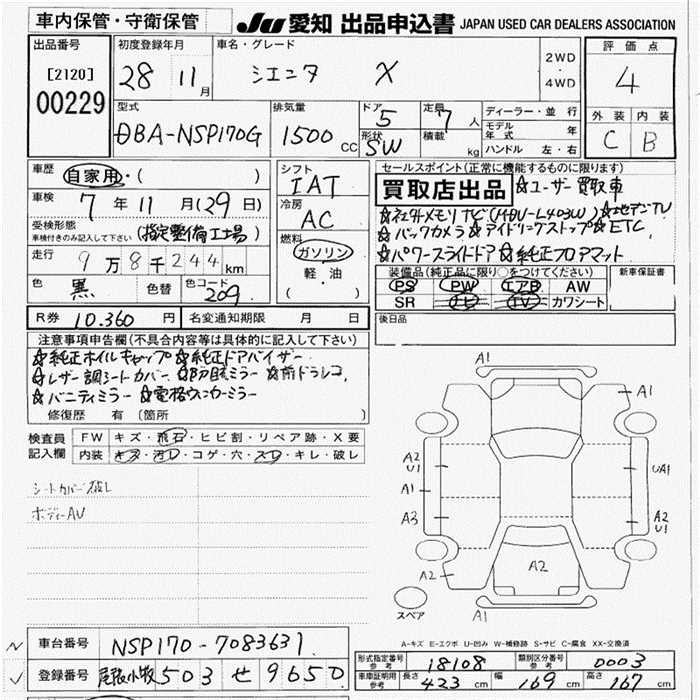 車内保管・守衛保管
JU 愛知 出品申込書 JAPAN USED CAR DEALERS ASSOCIATION
出品番号
[2120]
00229
初度登録年月
28 11月
車名・グレード
シエンタ X
2WD
・
4WD
評価点
4
外装 内装
C B
型式
DBA-NSP170G
排気量
1500 CC
ドア 5
形状 SW
定員 7 人
積載 kg
ディーラー・並行
モデル年式 年
ハンドル 左・右
車歴
自家用・( )
車検
7年11月(29日)
受検形態
車検付きのみ記入して下さい
(指定整備工場)
走行
9万8千244km
色 黒 色替 色コード 209
シフト
IAT
冷房
AC
燃料
ガソリン
軽・油
( )
セールスポイント(正常に機能するものに限ります)
買取店出品 ☆ユーザー買取車
☆社外メモリナビ(MDV-L403W) ☆地デジTV
☆バックカメラ ☆アイドリングストップ ☆ETC
☆パワースライドドア ☆純正フロアマット
装備品(純正品に限り○をつけてください)
PS PW エアB AW
SR ナビ TV カワシート
新車保証書
後日品
R券 10,360円 名変通知期限 月 日
注意事項申告欄(不具合内容等は具体的に記入して下さい)
☆純正ホイルキャップ ☆純正ドアバイザー
☆レザー調シートカバー ☆防眩ミラー ☆前ドラレコ
☆バニティミラー ☆電格ウィンカーミラー
修復歴 有 (箇所 )
検査員記入欄
FW キズ・飛石・ヒビ割・リペア跡・X要
内装 キズ・汚レ・コゲ・穴・スレ・キレ・破レ
シートカバー破レ
ボディーAU
A1
A1
A2
U1
UA1
A1
A3
A2
U1
A2
A2
スペア
A1
A-キズ E-エクボ U-凹み W-補修跡 S-サビ C-腐食 XX-交換済
車台番号 NSP170-7083631
登録番号 尾張小牧 503 せ 9650
形式指定番号 参考 18108 類別区分番号 参考 0003
車庫証明用 参考 長さ 423cm 幅 169cm 高さ 167cm